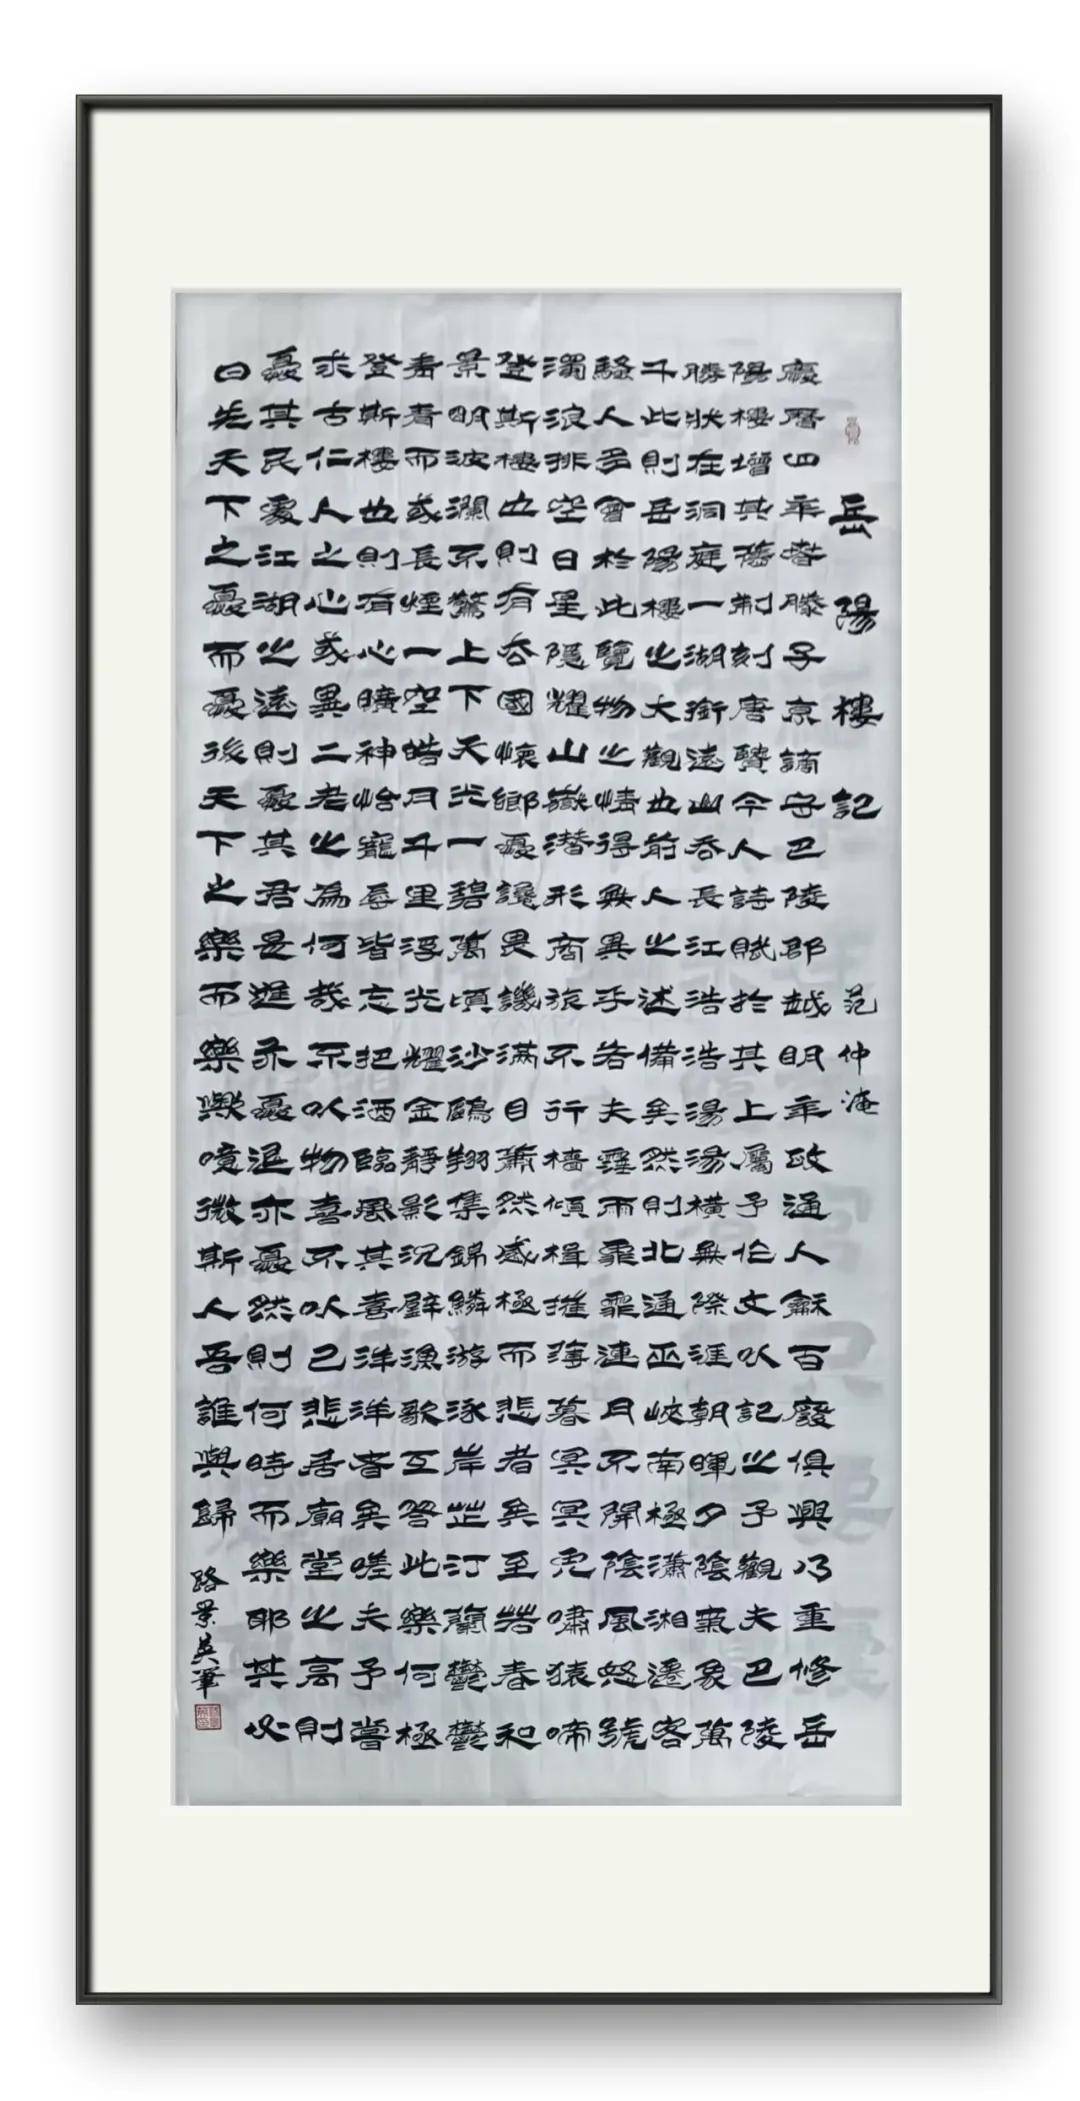 岳陽樓記 范仲淹
慶曆四年春滕子京謫守巴陵郡越明年政通人龢百廢俱興乃重修岳
陽樓增其舊制刻唐賢今人詩賦於其上屬予作文以記之予觀夫巴陵
勝狀在洞庭一湖銜遠山吞長江浩浩湯湯橫無際涯朝暉夕陰氣象萬
千此則岳陽樓之大觀也前人之述備矣然則北通巫峽南極瀟湘遷客
騷人多會於此覽物之情得無異乎若夫霪雨霏霏連月不開陰風怒號
濁浪排空日星隱耀山嶽潛形商旅不行檣傾楫摧薄暮冥冥虎嘯猿啼
登斯樓也則有去國懷鄉憂讒畏譏滿目蕭然感極而悲者矣至若春和
景明波瀾不驚上下天光一碧萬頃沙鷗翔集錦鱗游泳岸芷汀蘭鬱鬱
青青而或長煙一空皓月千里浮光耀金靜影沉璧漁歌互答此樂何極
登斯樓也則有心曠神怡寵辱皆忘把酒臨風其喜洋洋者矣嗟夫予嘗
求古仁人之心或異二者之為何哉不以物喜不以己悲居廟堂之高則
憂其民處江湖之遠則憂其君是進亦憂退亦憂然則何時而樂耶其必
曰先天下之憂而憂後天下之樂而樂歟噫微斯人吾誰與歸 路景英筆